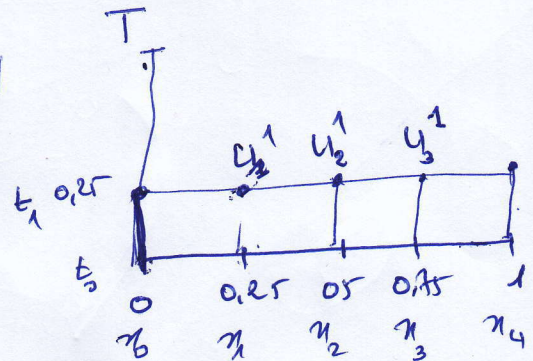 T
U₁¹ U₂¹ U₃¹
t₁ 0,25
t₀
0 0,25 05 0,75 1
x₀ x₁ x₂ x₃ x₄